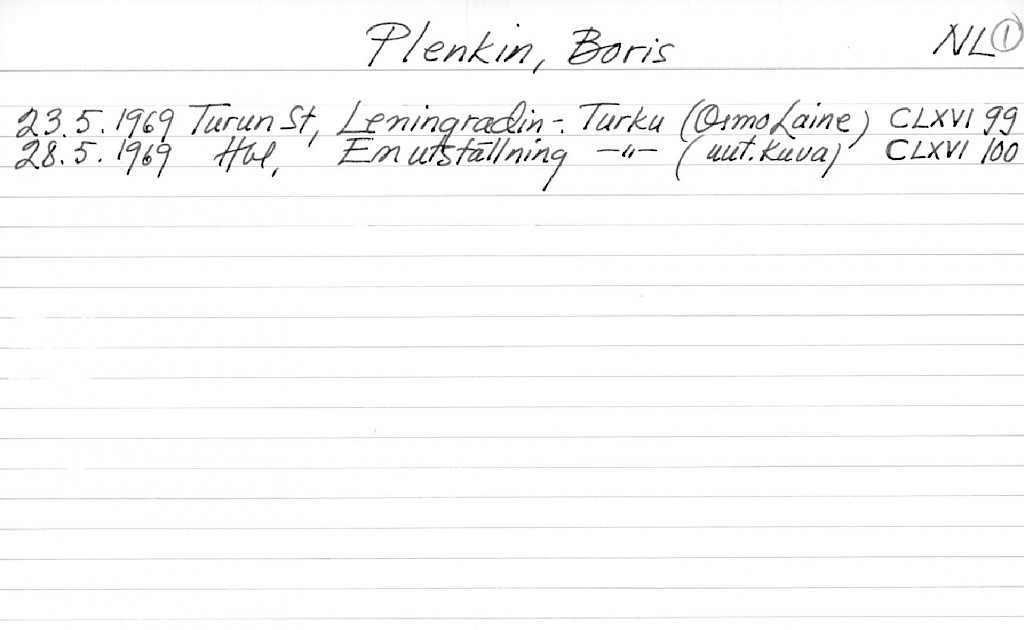 Plenkin, Boris NL 1
23.5.1969 Turun St, Leningradin-. Turku (Osmo Laine) CLXVI 99
28.5.1969 Hbl, En utställning -"- (uut. kuva) CLXVI 100